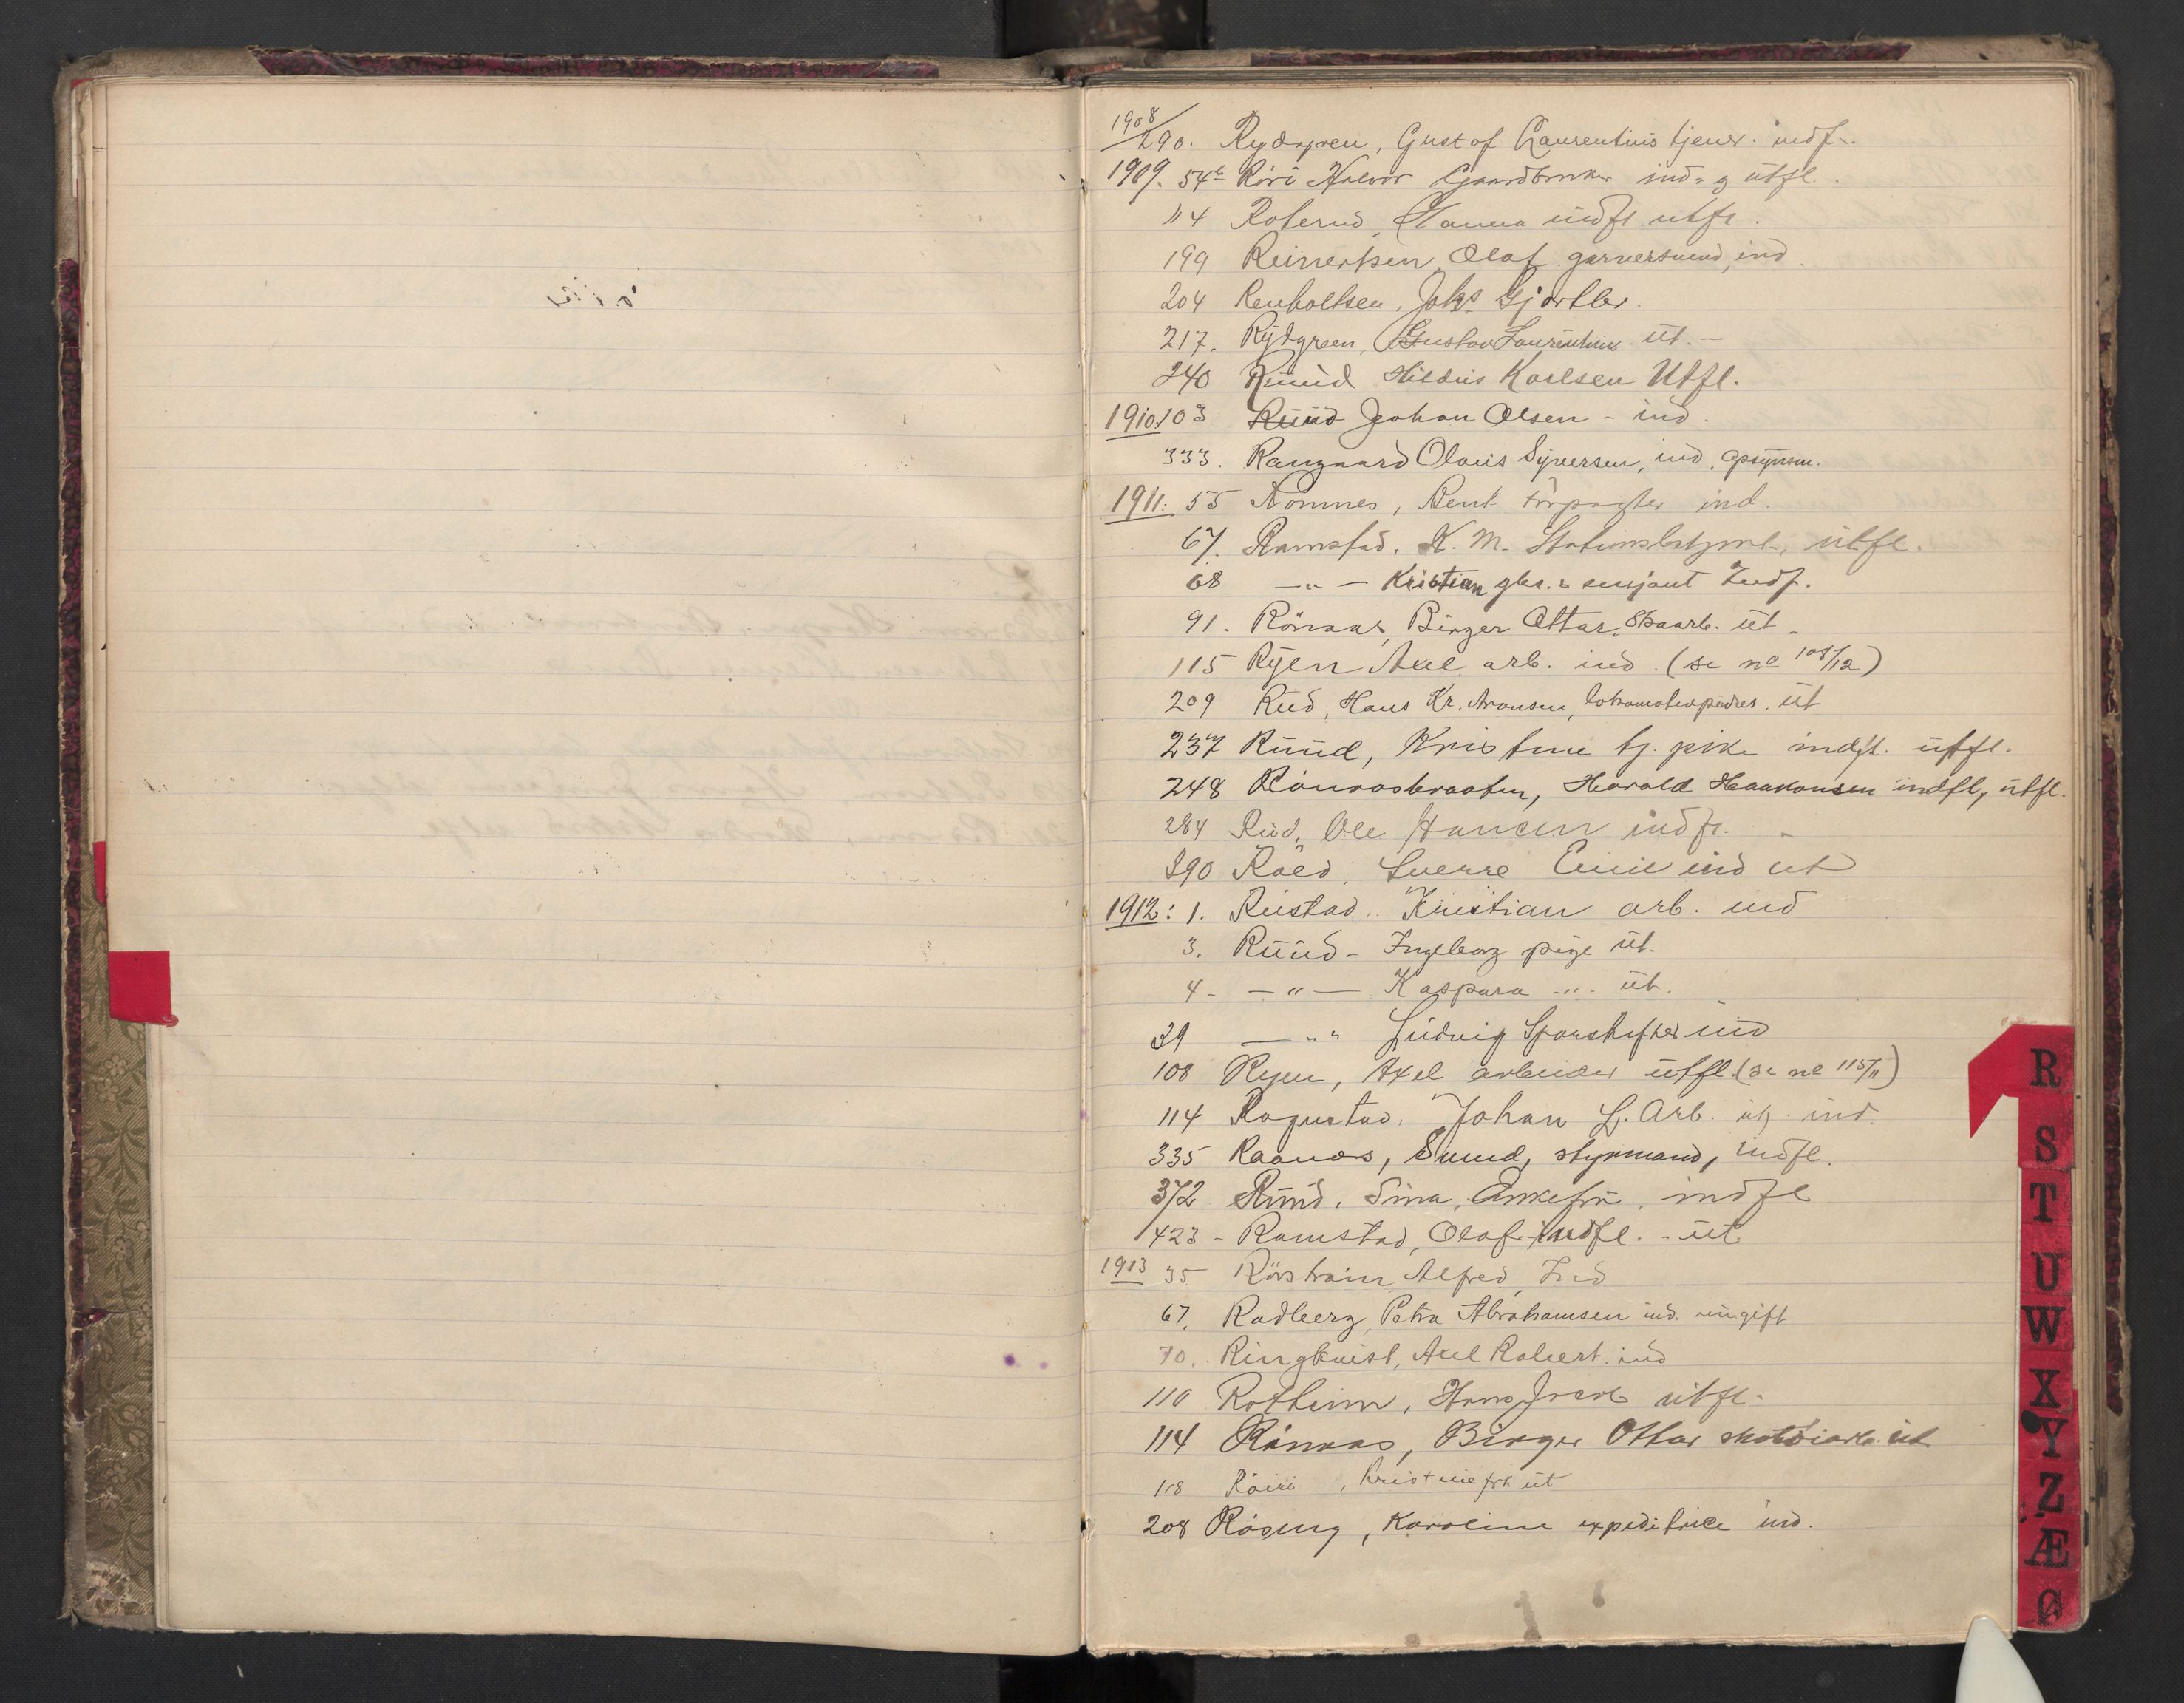 1908/290. Rydgren, Gustof Laurentius tjener. indf.
1909. 54b Röri Halvor Gaardbruker ind- g ütfl.
114 Roterud, Hanna indfl. utfl.
199 Reinertsen, Olaf garversvend, ind.
204 Renholtsen, Johs. Gjørtler.
217. Rydgreen, Gustav Laurentius üt. -
240 Ruud Hildus Karlsen Utfl.
1910. 103 Rüüd Johan Olsen - ind.
333. Rangaard Olaüs Syversen, ind, opsynsm.
1911: 55 Romnes, Bent ind.
67. Ramstad, K. M. ütfl.
68 -„- Kristian gbr. & serjant Indf.
91. Rönaas, Birger Ottar, Skoarb. üt -
115 Ryen Axel arb. ind. (se no 108/12)
209 Rüd, Hans Kr. Aronsen, üt
237 Rüüd, Kristine tj. pike indfl. ütfl.
248 Rönaasbraaten, Harald Haakonsen indfl, ütfl.
284 Rüd, Ole Hansen indfl. -
390 Röed, Sverre Emil ind üt
1912: 1. Rüstad, Kristian arb. ind
3. Rüüd - Ingeborg pige üt.
4 - -„- Kaspara -„- üt.
39 -„- Lüdvig Sporskifter ind
108 Ryen, Axel arbeider ütfl. (se no 115/11)
114 Rognstad, Johan L. Arb. ind.
335 Raanaas, Svend, styrmand, indfl.
372 Rüüd, Sina, Enkefrü, indfl
423 - Ramstad, Olaf - indfl. - üt
1913 35 Alfred, Ind
67. Rodberg, Petra Abrahamsen ind. üngift
70. Ringkvist, Axel Robert ind
110 Rotheim, Hans Jacob ütfl.
114 Rönaas, Birger Ottar skotöiarb. üt
118 Röiri, Kristine frk üt
208 Röseng, Karoline expeditrice ind.
R
S
T
U
W
X
Y
Z
Æ
Ø